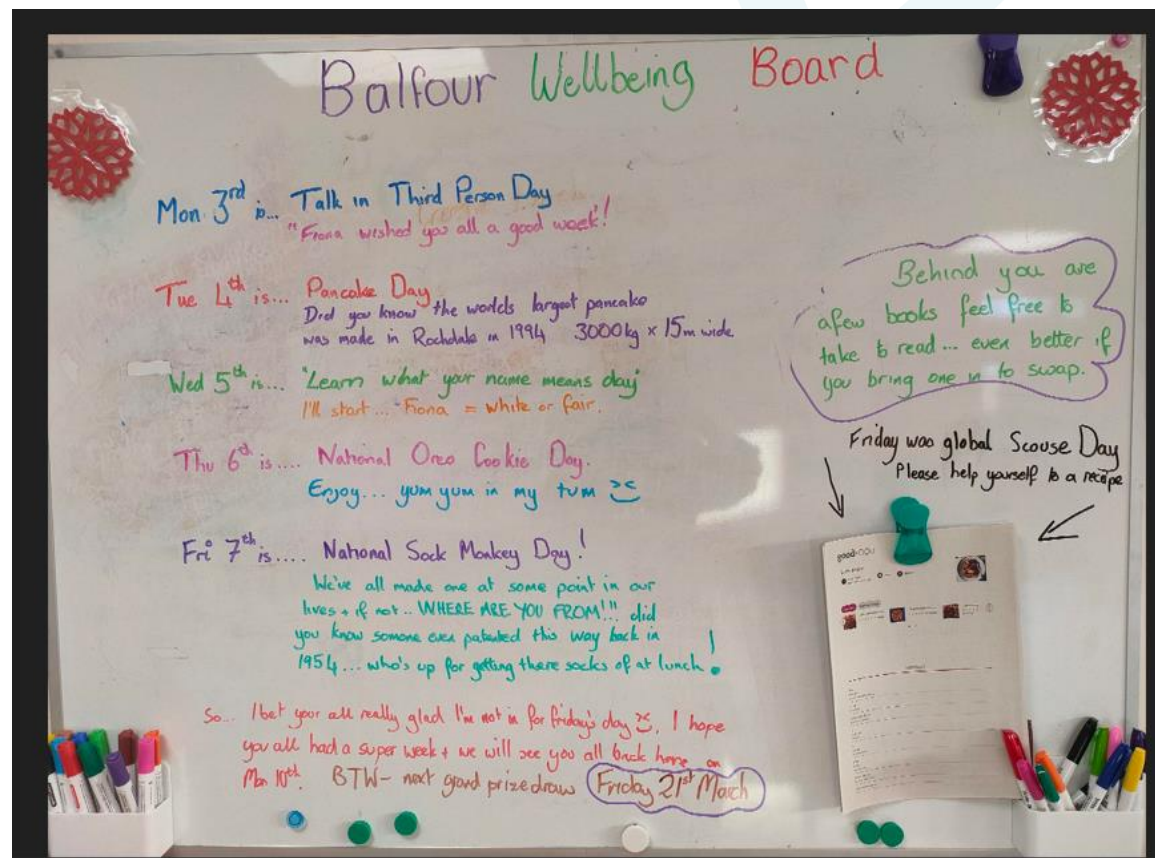 Balfour Wellbeing Board
Mon 3rd is... Talk in Third Person Day
"Fiona wished you all a good week"!
Tue 4th is... Pancake Day
Did you know the worlds largest pancake
was made in Rochdale in 1994 3000kg x 15m wide
Wed 5th is... 'Learn what your name means day'
I'll start... Fiona = white or fair.
Thu 6th is.... National Oreo Cookie Day.
Enjoy... yum yum in my tum
Fri 7th is..... National Sock Monkey Day!
We've all made one at some point in our
lives + if not.. WHERE ARE YOU FROM!!" did
you know somone even patented this way back in
1954... who's up for getting there socks of at lunch!
So... I bet your all really glad I'm not in for friday's day, I hope
you all had a super week + we will see you all back here on
Mon 10th. BTW- next grand prize draw Friday 21st March
Behind you are
afew books feel free to
take to read... even better if
you bring one in to swap.
Friday was global Scouse Day
Please help yourself to a recipe
good